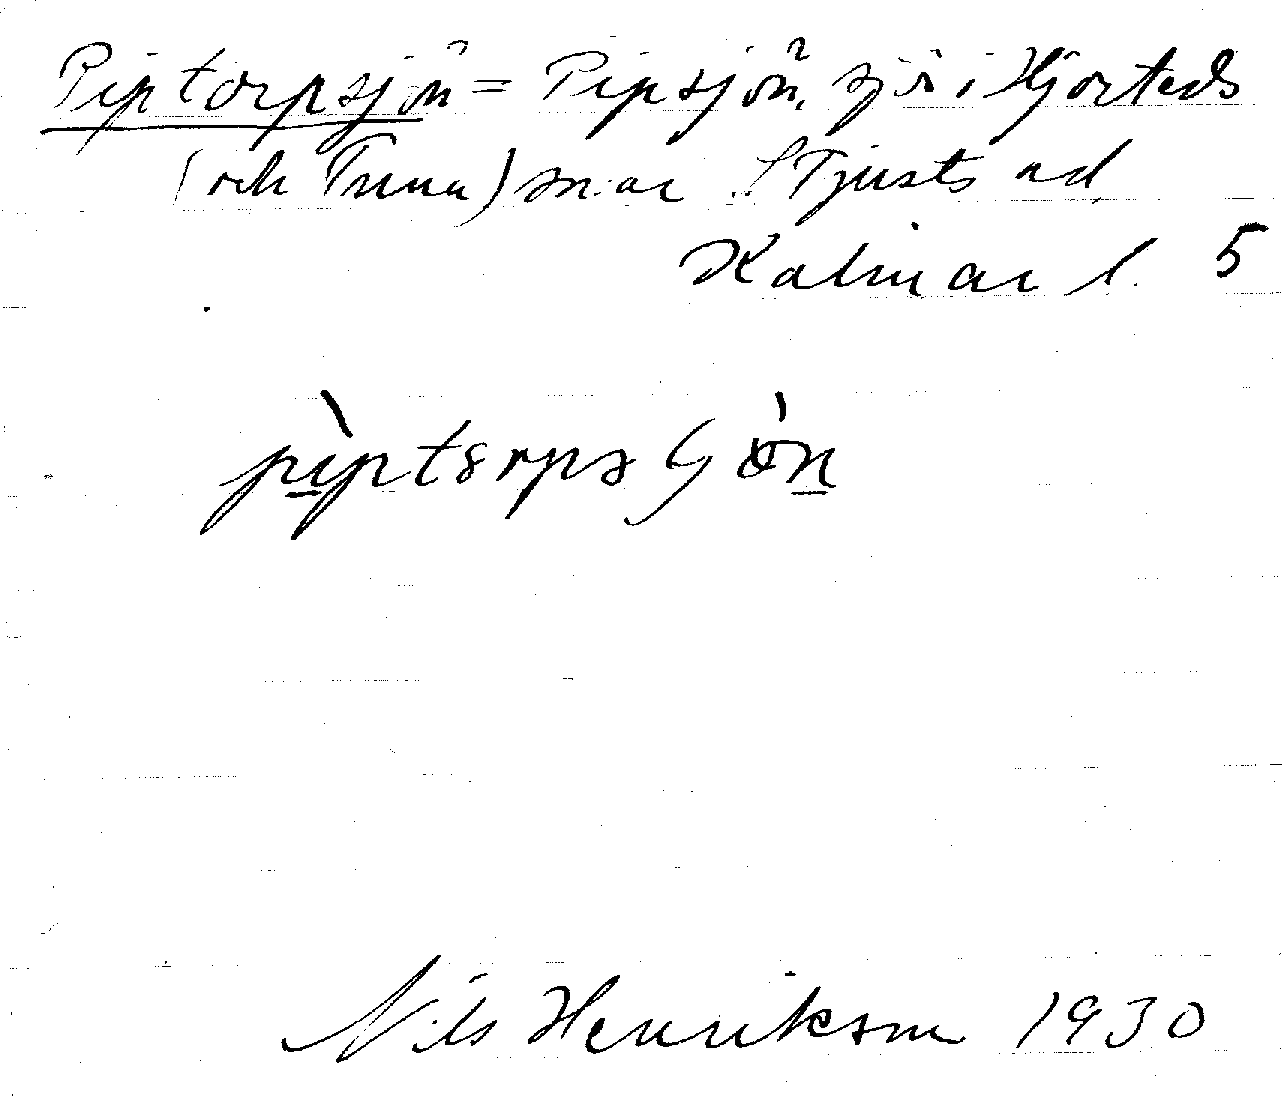 Piptorpsjön = Pipsjön, sjö i Hjorteds
(och Tuna) s:nar S Tjusts hd
Kalmar l. 5
pìptørpsʃön
Nils Henrikson 1930